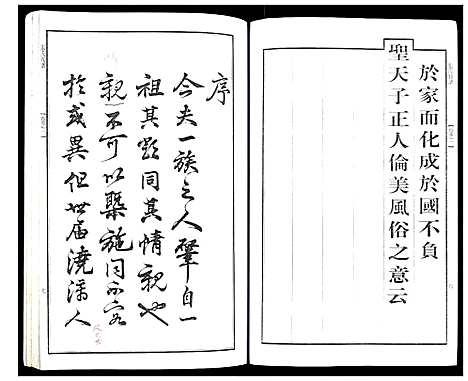 於家而化成於國不負
聖天子正人倫美風俗之意云
序
今夫一族之人肇自一
祖其點同其情親也
親不可以槩施同不容
於或異但世届澆漓人